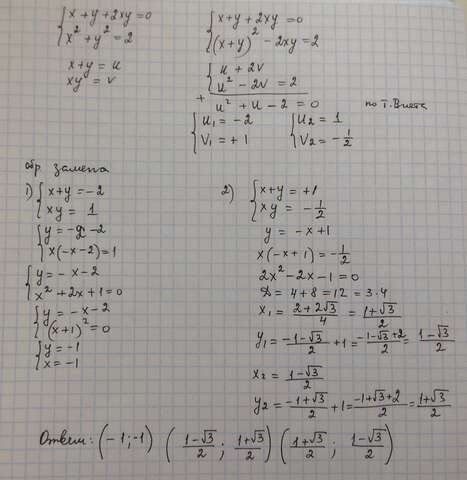 { x + y + 2xy = 0
{ x² + y² = 2
x + y = u
xy = v
{ x + y + 2xy = 0
{ (x + y)² - 2xy = 2
{ u + 2v
{ u² - 2v = 2
+ u² + u - 2 = 0 по т. Виета
{ u₁ = -2
{ v₁ = +1
{ u₂ = 1
{ v₂ = -1/2
обр. замена
1) { x + y = -2
{ xy = 1
{ y = -y - 2
{ x(-x - 2) = 1
{ y = -x - 2
{ x² + 2x + 1 = 0
{ y = -x - 2
{ (x + 1)² = 0
{ y = -1
{ x = -1
2) { x + y = +1
{ xy = -1/2
y = -x + 1
x(-x + 1) = -1/2
2x² - 2x - 1 = 0
D = 4 + 8 = 12 = 3·4
x₁ = (2 + 2√3)/4 = (1 + √3)/2
y₁ = (-1 - √3)/2 + 1 = (-1 - √3 + 2)/2 = (1 - √3)/2
x₂ = (1 - √3)/2
y₂ = (-1 + √3)/2 + 1 = (-1 + √3 + 2)/2 = (1 + √3)/2
Ответ: (-1; -1) ((1 - √3)/2; (1 + √3)/2) ((1 + √3)/2; (1 - √3)/2)